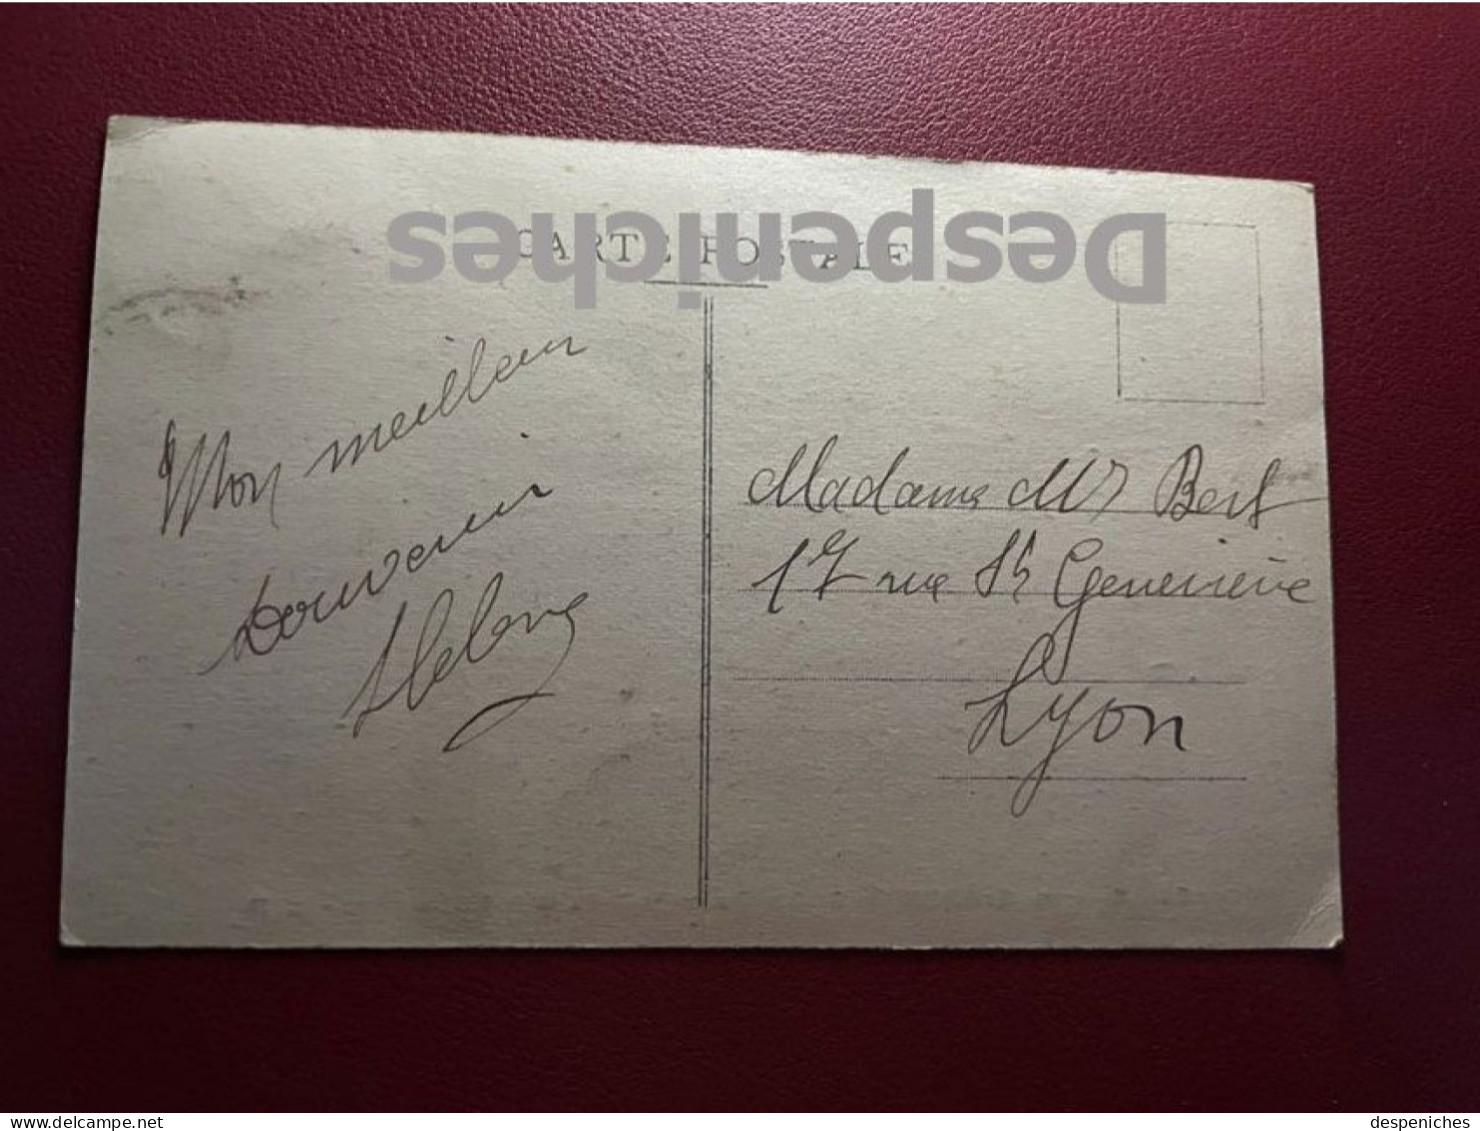 Despeniches
CARTE POSTALE
Mon meilleur
Souvenir
Madame Bert
17 rue Ste Geneviève
Lyon
delcampe.net
despeniches